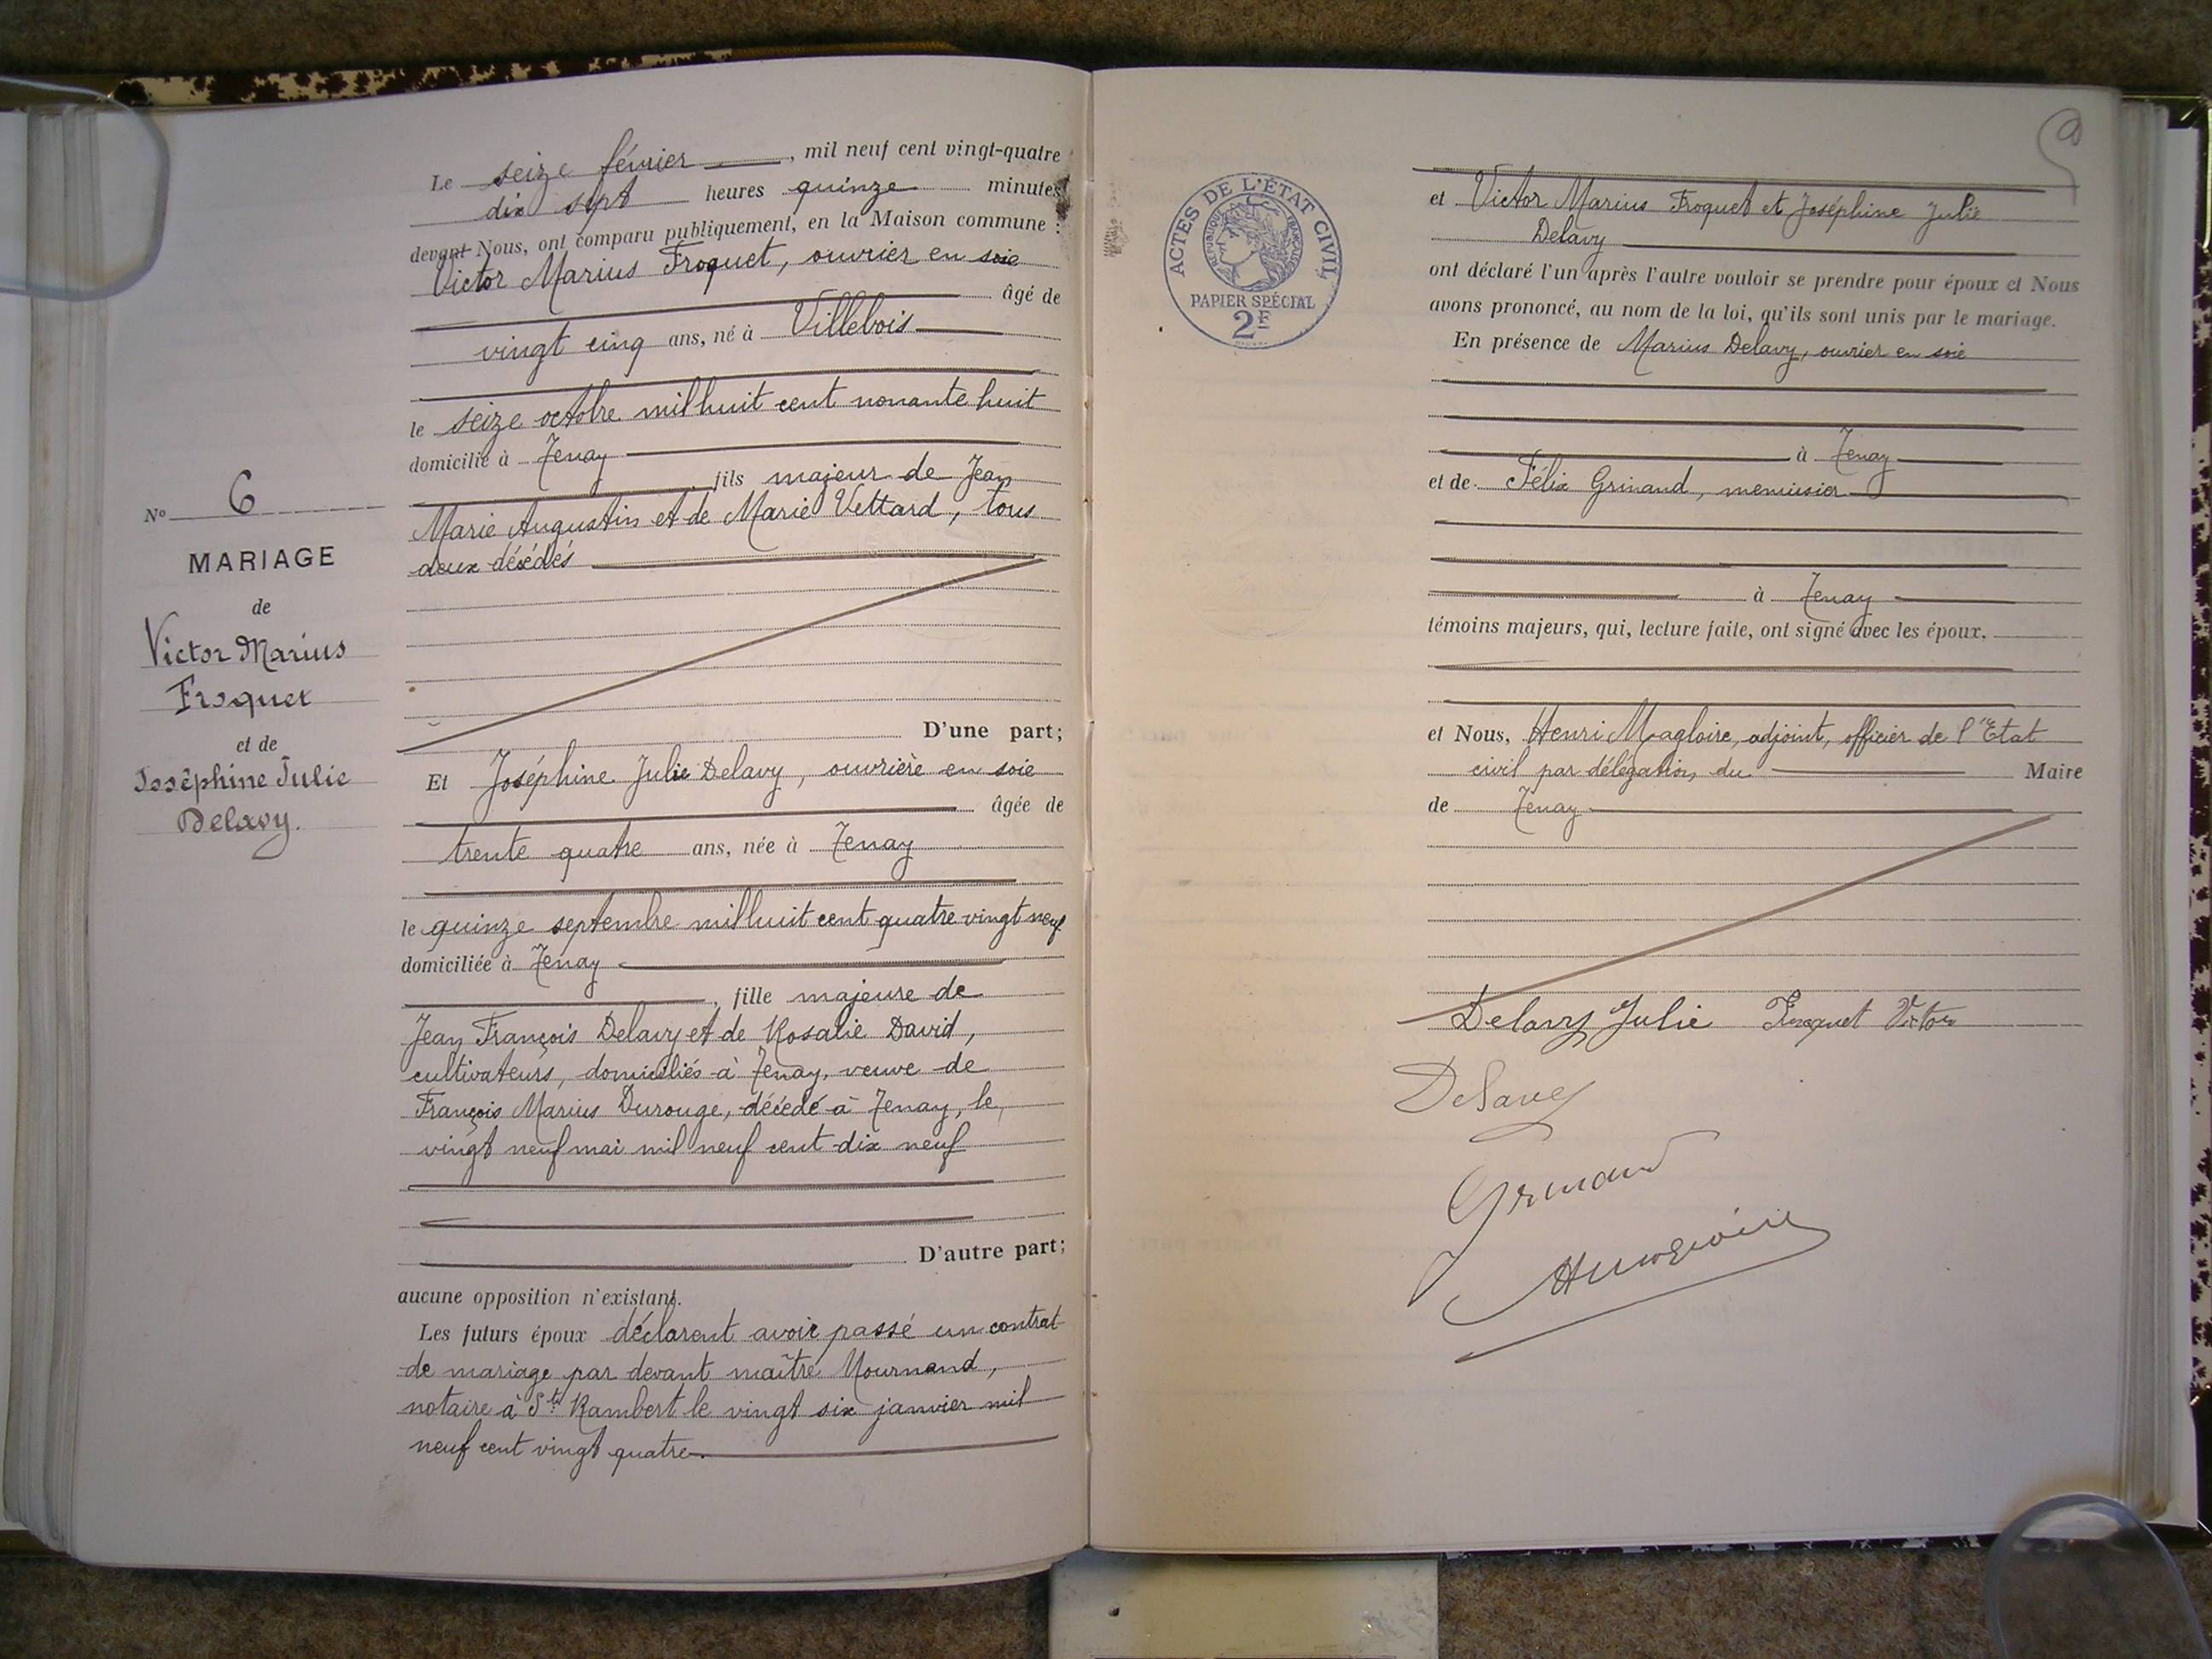 Le seize février, mil neuf cent vingt-quatre
dix sept heures quinze minutes
devant Nous, ont comparu publiquement, en la Maison commune :
Victor Marius Froquet, ouvrier en soie
âgé de
vingt cinq ans, né à Villebois
le seize octobre mil huit cent nonante huit
domicilié à Tenay
fils majeur de Jean
Marie Augustin et de Marie Vettard, tous
deux décédés
D'une part;
Nº 6
MARIAGE
de
Victor Marius
Froquet
et de
Joséphine Julie
Delavy.
Et Joséphine Julie Delavy, ouvrière en soie
âgée de
trente quatre ans, née à Tenay
le quinze septembre mil huit cent quatre vingt neuf
domiciliée à Tenay
, fille majeure de
Jean François Delavy et de Rosalie David,
cultivateurs, domiciliés à Tenay, veuve de
François Marius Durouge, décédé à Tenay, le
vingt neuf mai mil neuf cent dix neuf
D'autre part;
aucune opposition n'existant.
Les futurs époux déclarent avoir passé un contrat
de mariage par devant maître
notaire à St Rambert le vingt six janvier mil
neuf cent vingt quatre.
ACTES DE L'ÉTAT CIVIL
RÉPUBLIQUE FRANÇAISE
PAPIER SPÉCIAL
2F
et Victor Marius Froquet et Joséphine Julie
Delavy
ont déclaré l'un après l'autre vouloir se prendre pour époux et Nous
avons prononcé, au nom de la loi, qu'ils sont unis par le mariage.
En présence de Marius Delavy, ouvrier en soie
à Tenay
et de Félix Grinand, menuisier
à Tenay
témoins majeurs, qui, lecture faite, ont signé avec les époux.
et Nous, Henri Magloire, adjoint, officier de l'Etat
civil par délégation du Maire
de Tenay
Delavy Julie Froquet Victor
Delavy
Grinand